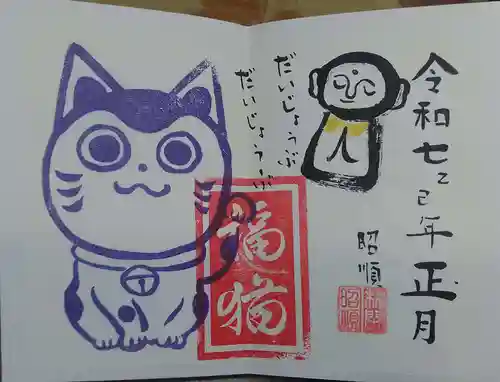 令和七乙巳年正月
昭順
だいじょうぶ
だいじょうぶ
福猫